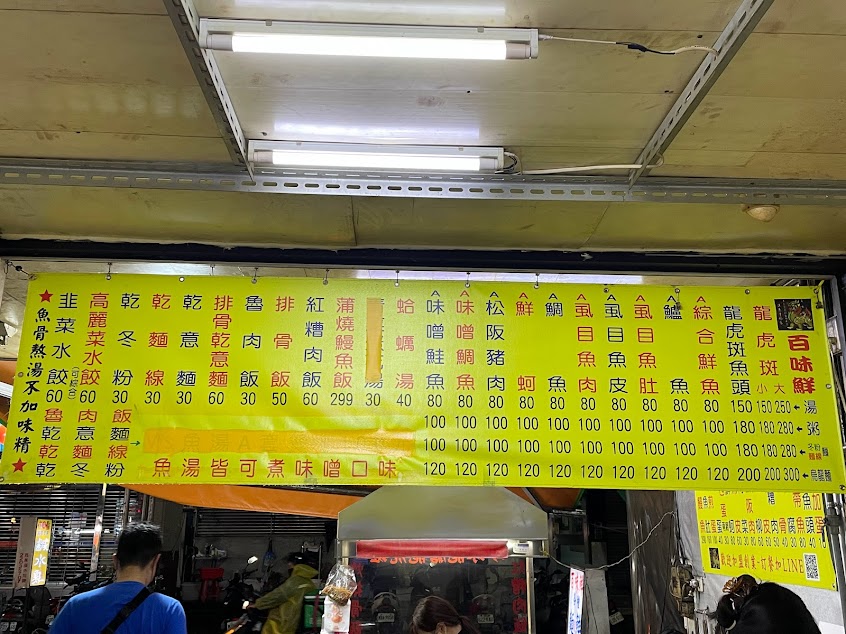 百味鮮
龍虎斑 小 大
龍虎斑魚頭
A綜合鮮魚
A鱸魚
A虱目魚肚
A虱目魚皮
A虱目魚肉
A鯛魚
A鮮蚵
A松阪豬肉
A味噌鯛魚
A味噌鮭魚
蛤蠣湯
蒲燒鰻魚飯
紅糟肉飯
排骨飯
魯肉飯
排骨乾意麵
乾意麵
乾麵線
乾冬粉
高麗菜水餃
(可綜合)
韭菜水餃
★魚骨熬湯不加味精★
60 60 30 30 30 60 30 50 60 299 30 40 80 80 80 80 80 80 80 80 80 80 150 150 250 ←湯
100 100 100 100 100 100 100 100 100 100 180 180 280 ←粥
100 100 100 100 100 100 100 100 100 100 180 180 280 ←冬粉 麵線 麵
120 120 120 120 120 120 120 120 120 120 200 200 300 ←烏龍麵
魯肉飯
乾意麵
乾麵線
乾冬粉
魚湯皆可煮味噌口味
歡迎加盟創業~訂餐加LINE